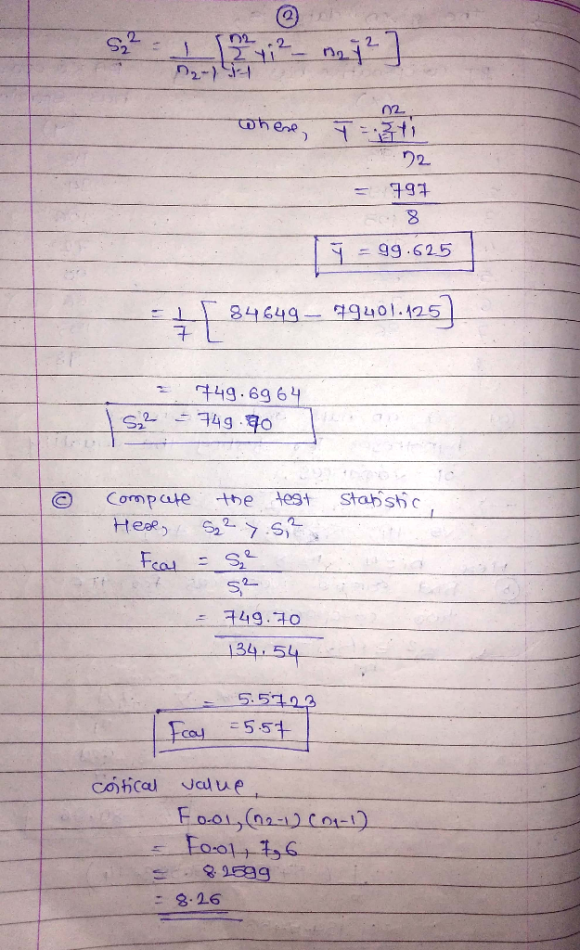 2
S₂² = 1/(n₂-1) [ n2 Σ i=1 yi² - n₂ȳ² ]
where, ȳ = n2 Σ i=1 yi / n2
= 797 / 8
ȳ = 99.625
= 1/7 [ 84649 - 79401.125 ]
= 749.6964
S₂² = 749.70
(c) Compute the test statistic,
Here, S₂² > S₁²
Fcal = S₂² / S₁²
= 749.70 / 134.54
= 5.5723
Fcal = 5.57
critical value,
F0.01, (n2-1) (n1-1)
= F0.01, 7,6
= 8.2599
= 8.26